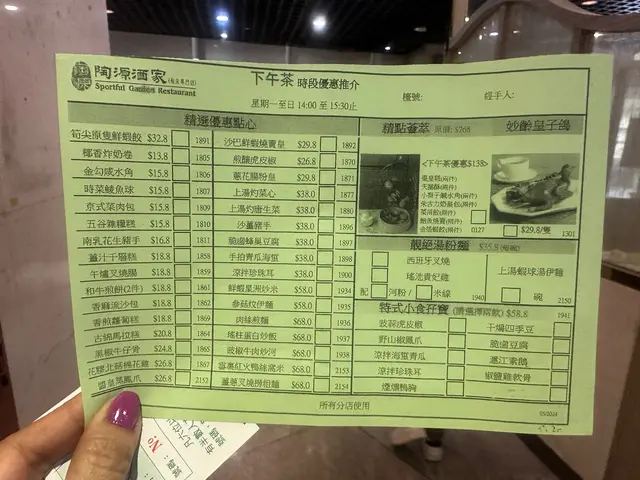 陶源酒家
Sportful Garden Restaurant
下午茶 時段優惠推介
星期一至日 14:00 至 15:30止
檯號:
經手人:
精選優惠點心
筍尖原隻鮮蝦餃 $32.8 1891
椰香炸奶卷 $13.8 1805
金勾咸水角 $15.8 1806
時菜鯪魚球 $15.8 1807
京式菜肉包 $15.8 1809
五谷雜糧糕 $15.8 1810
南乳花生豬手 $16.8 1811
薑汁千層糕 $18.8 1858
午爐叉燒腸 $18.8 1859
和牛煎餅(2件) $18.8 1861
香麻流沙包 $18.8 1862
香煎蘿蔔糕 $18.8 1869
古綿馬拉糕 $20.8 1864
黑椒牛仔骨 $24.8 1865
花膠北菇棉花雞 $26.8 1867
豐皇蒸鳳爪 $26.8 2152
沙巴鮮蝦燒賣皇 $29.8 1892
煎釀虎皮椒 $26.8 1870
蔥花腸粉皇 $29.8 1871
上湯灼菜心 $38.0 1877
上湯灼唐生菜 $38.0 1880
沙薑豬手 $38.0 1896
脆滷蜂巢豆腐 $38.0 1897
手拍青瓜海蜇 $38.0 1898
涼拌珍珠耳 $38.0 1900
鮮蝦星洲炒米 $58.0 1934
參菇炆伊麵 $58.0 1935
肉絲煎麵 $68.0 1936
瑤柱蛋白炒飯 $68.0 1937
豉椒牛肉炒河 $68.0 1938
雪裏紅火鴨絲窩米 $68.0 2153
薑蔥叉燒撈粗麵 $68.0 2154
精點薈萃 原價: $268
<下午茶優惠$138>
0127
妙齡皇子鴿
$29.8/隻 1301
靚絕湯粉麵 $35.8
西班牙叉燒
瑤池貴妃雞
配 河粉 / 米線 1940
上湯蝦球湯伊麵
碗 2150
特式小食孖寶 (請選擇兩款) $58.8 1941
豉蒜虎皮椒
野山椒鳳爪
涼拌海蜇青瓜
涼拌珍珠耳
煙燻鴨胸
干煸四季豆
脆滷豆腐
滬江素鵝
椒鹽雞軟骨
所有分店使用
05/2024